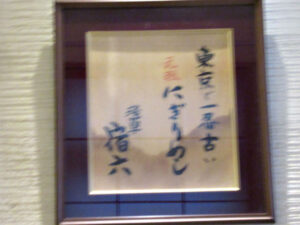 東京で一番古い
元祖
にぎりめし
浅草
宿六